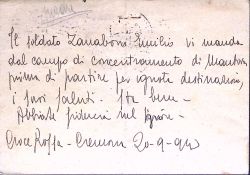 Il soldato Zanaboni Emilio vi manda
dal campo di concentramento di Mantova,
prima di partire per ignota destinazione,
i suoi saluti. Sta bene -
Abbiate fiducia nel Signore -
Croce Rossa - Cremona 20-9-943